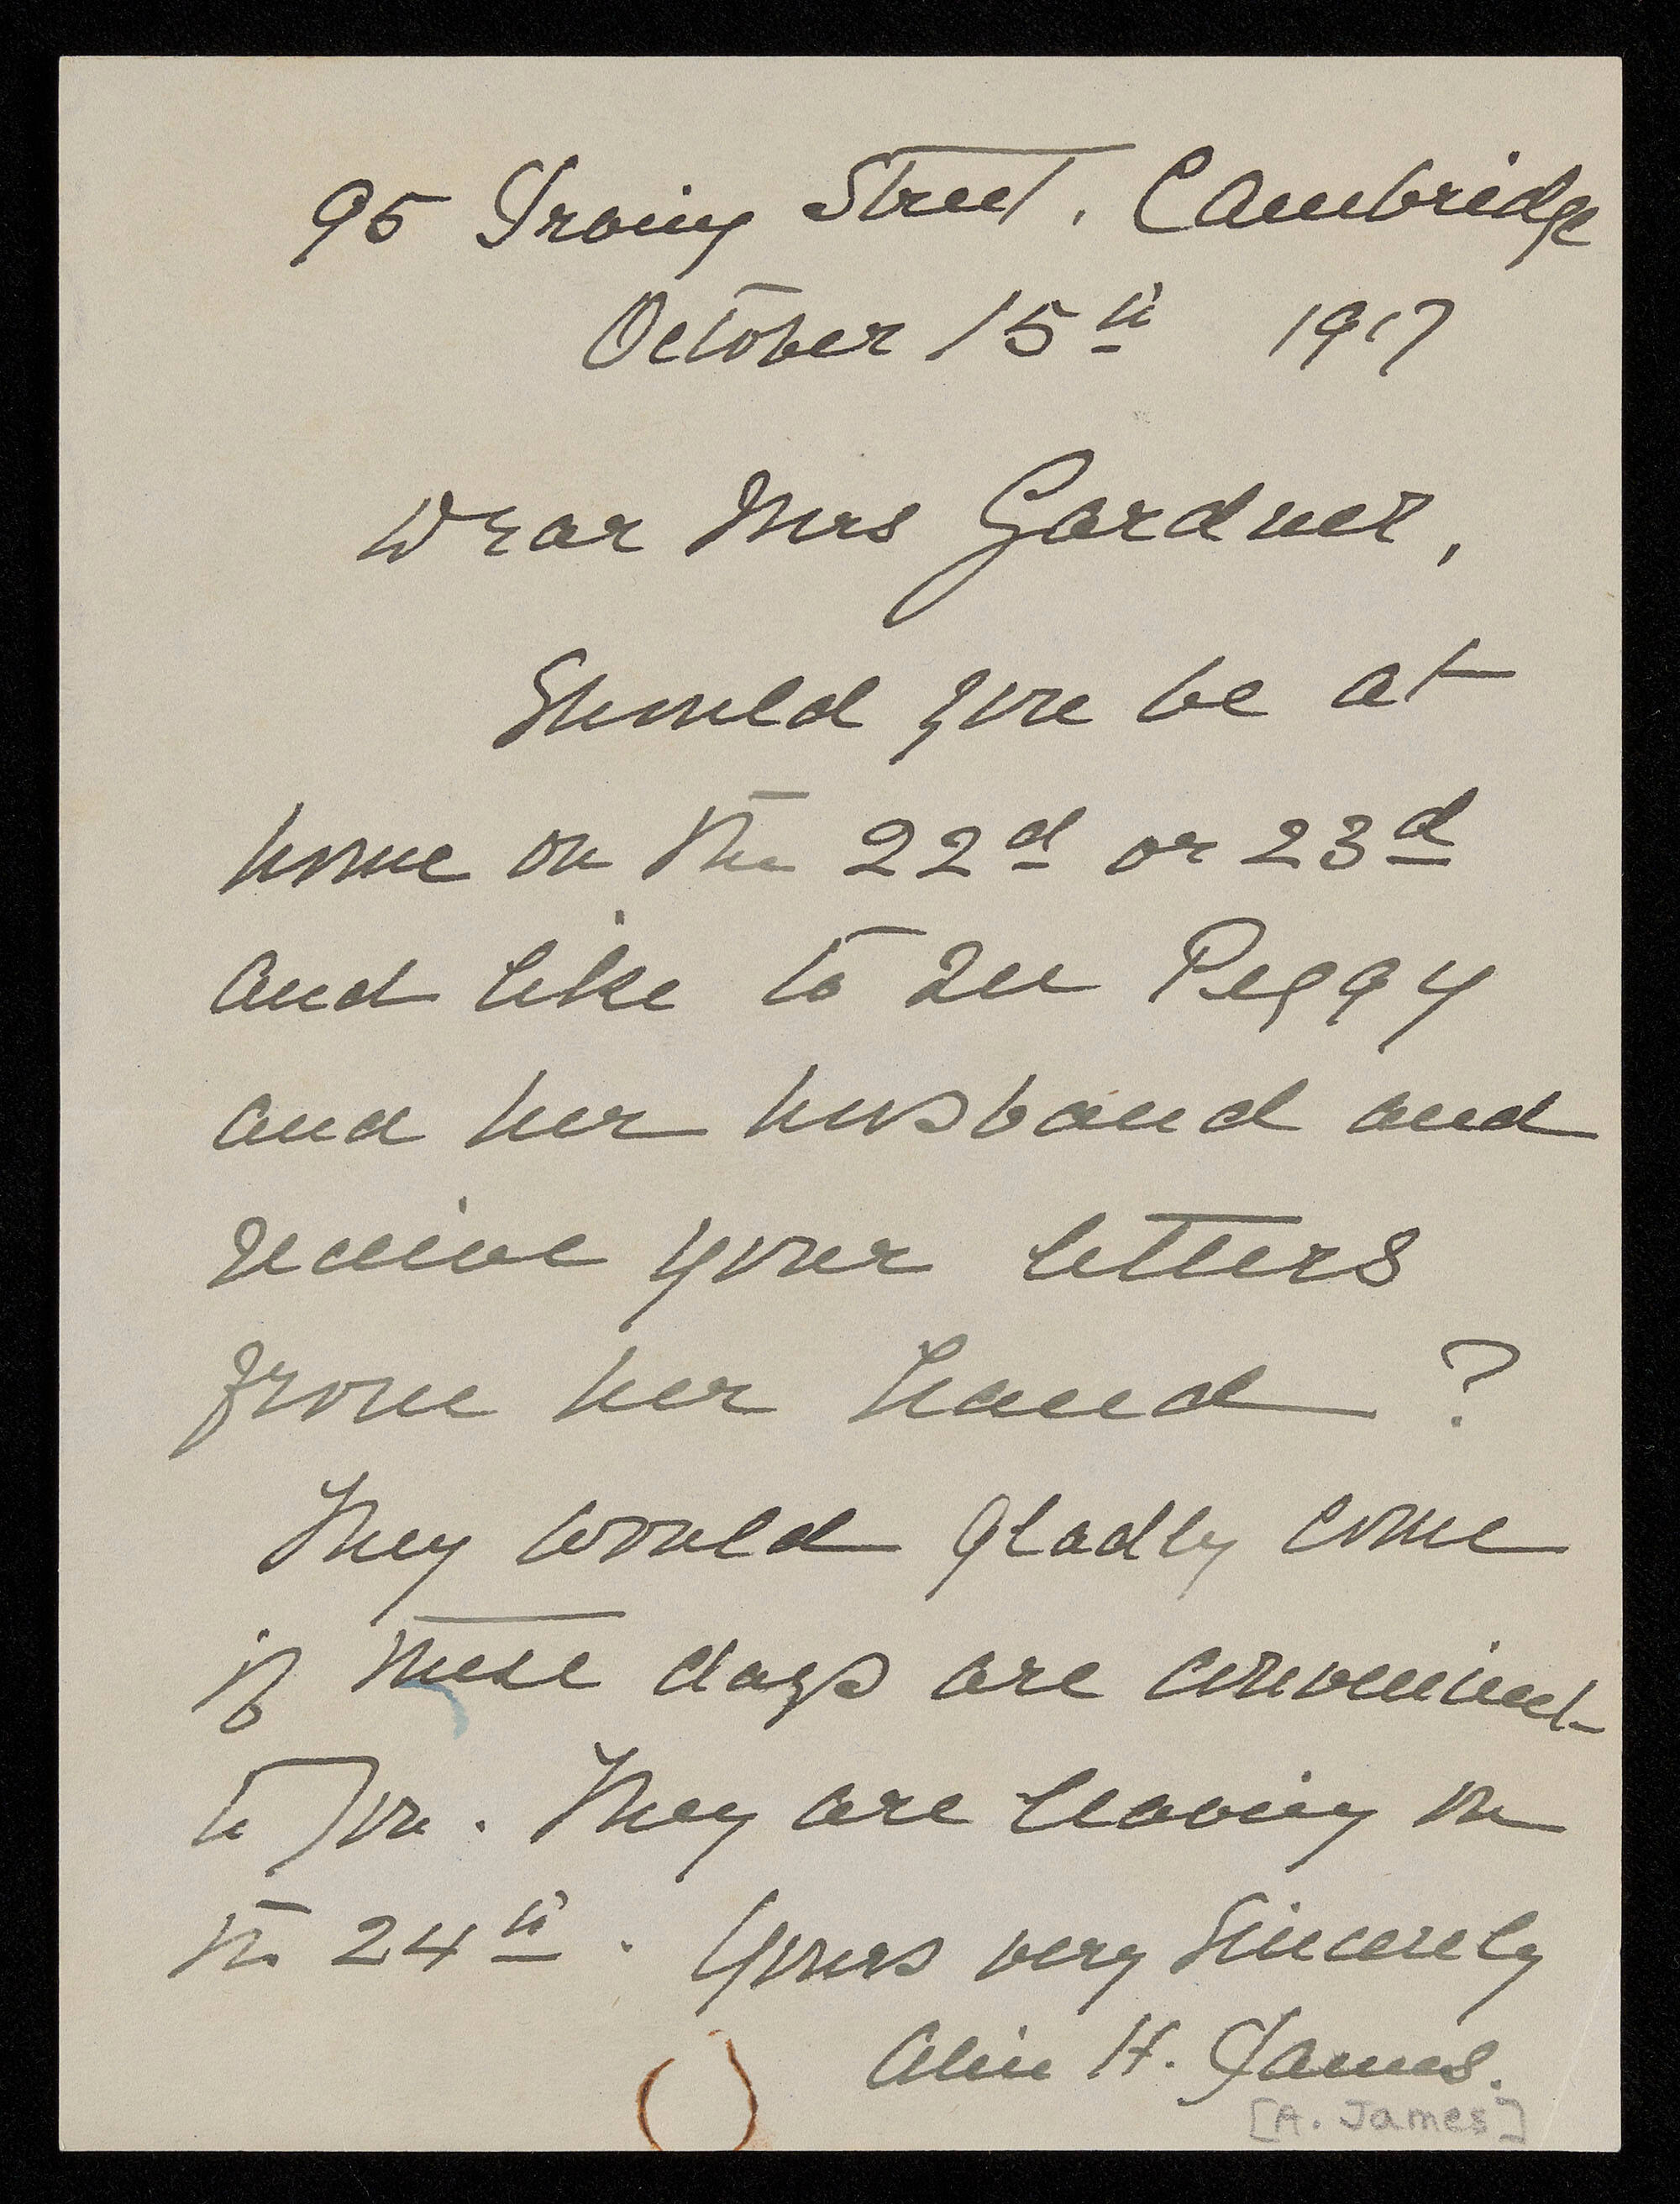 95 Irving Street, Cambridge
October 15th 1917
Dear Mrs Gardner,
Should you be at
home on the 22d or 23d
and like to see Peggy
and her husband and
receive your letters
from her hand?
They would gladly come
if these days are convenient
to you. They are leaving on
the 24th. Yours very sincerely
Alice H. James.
[A. James]